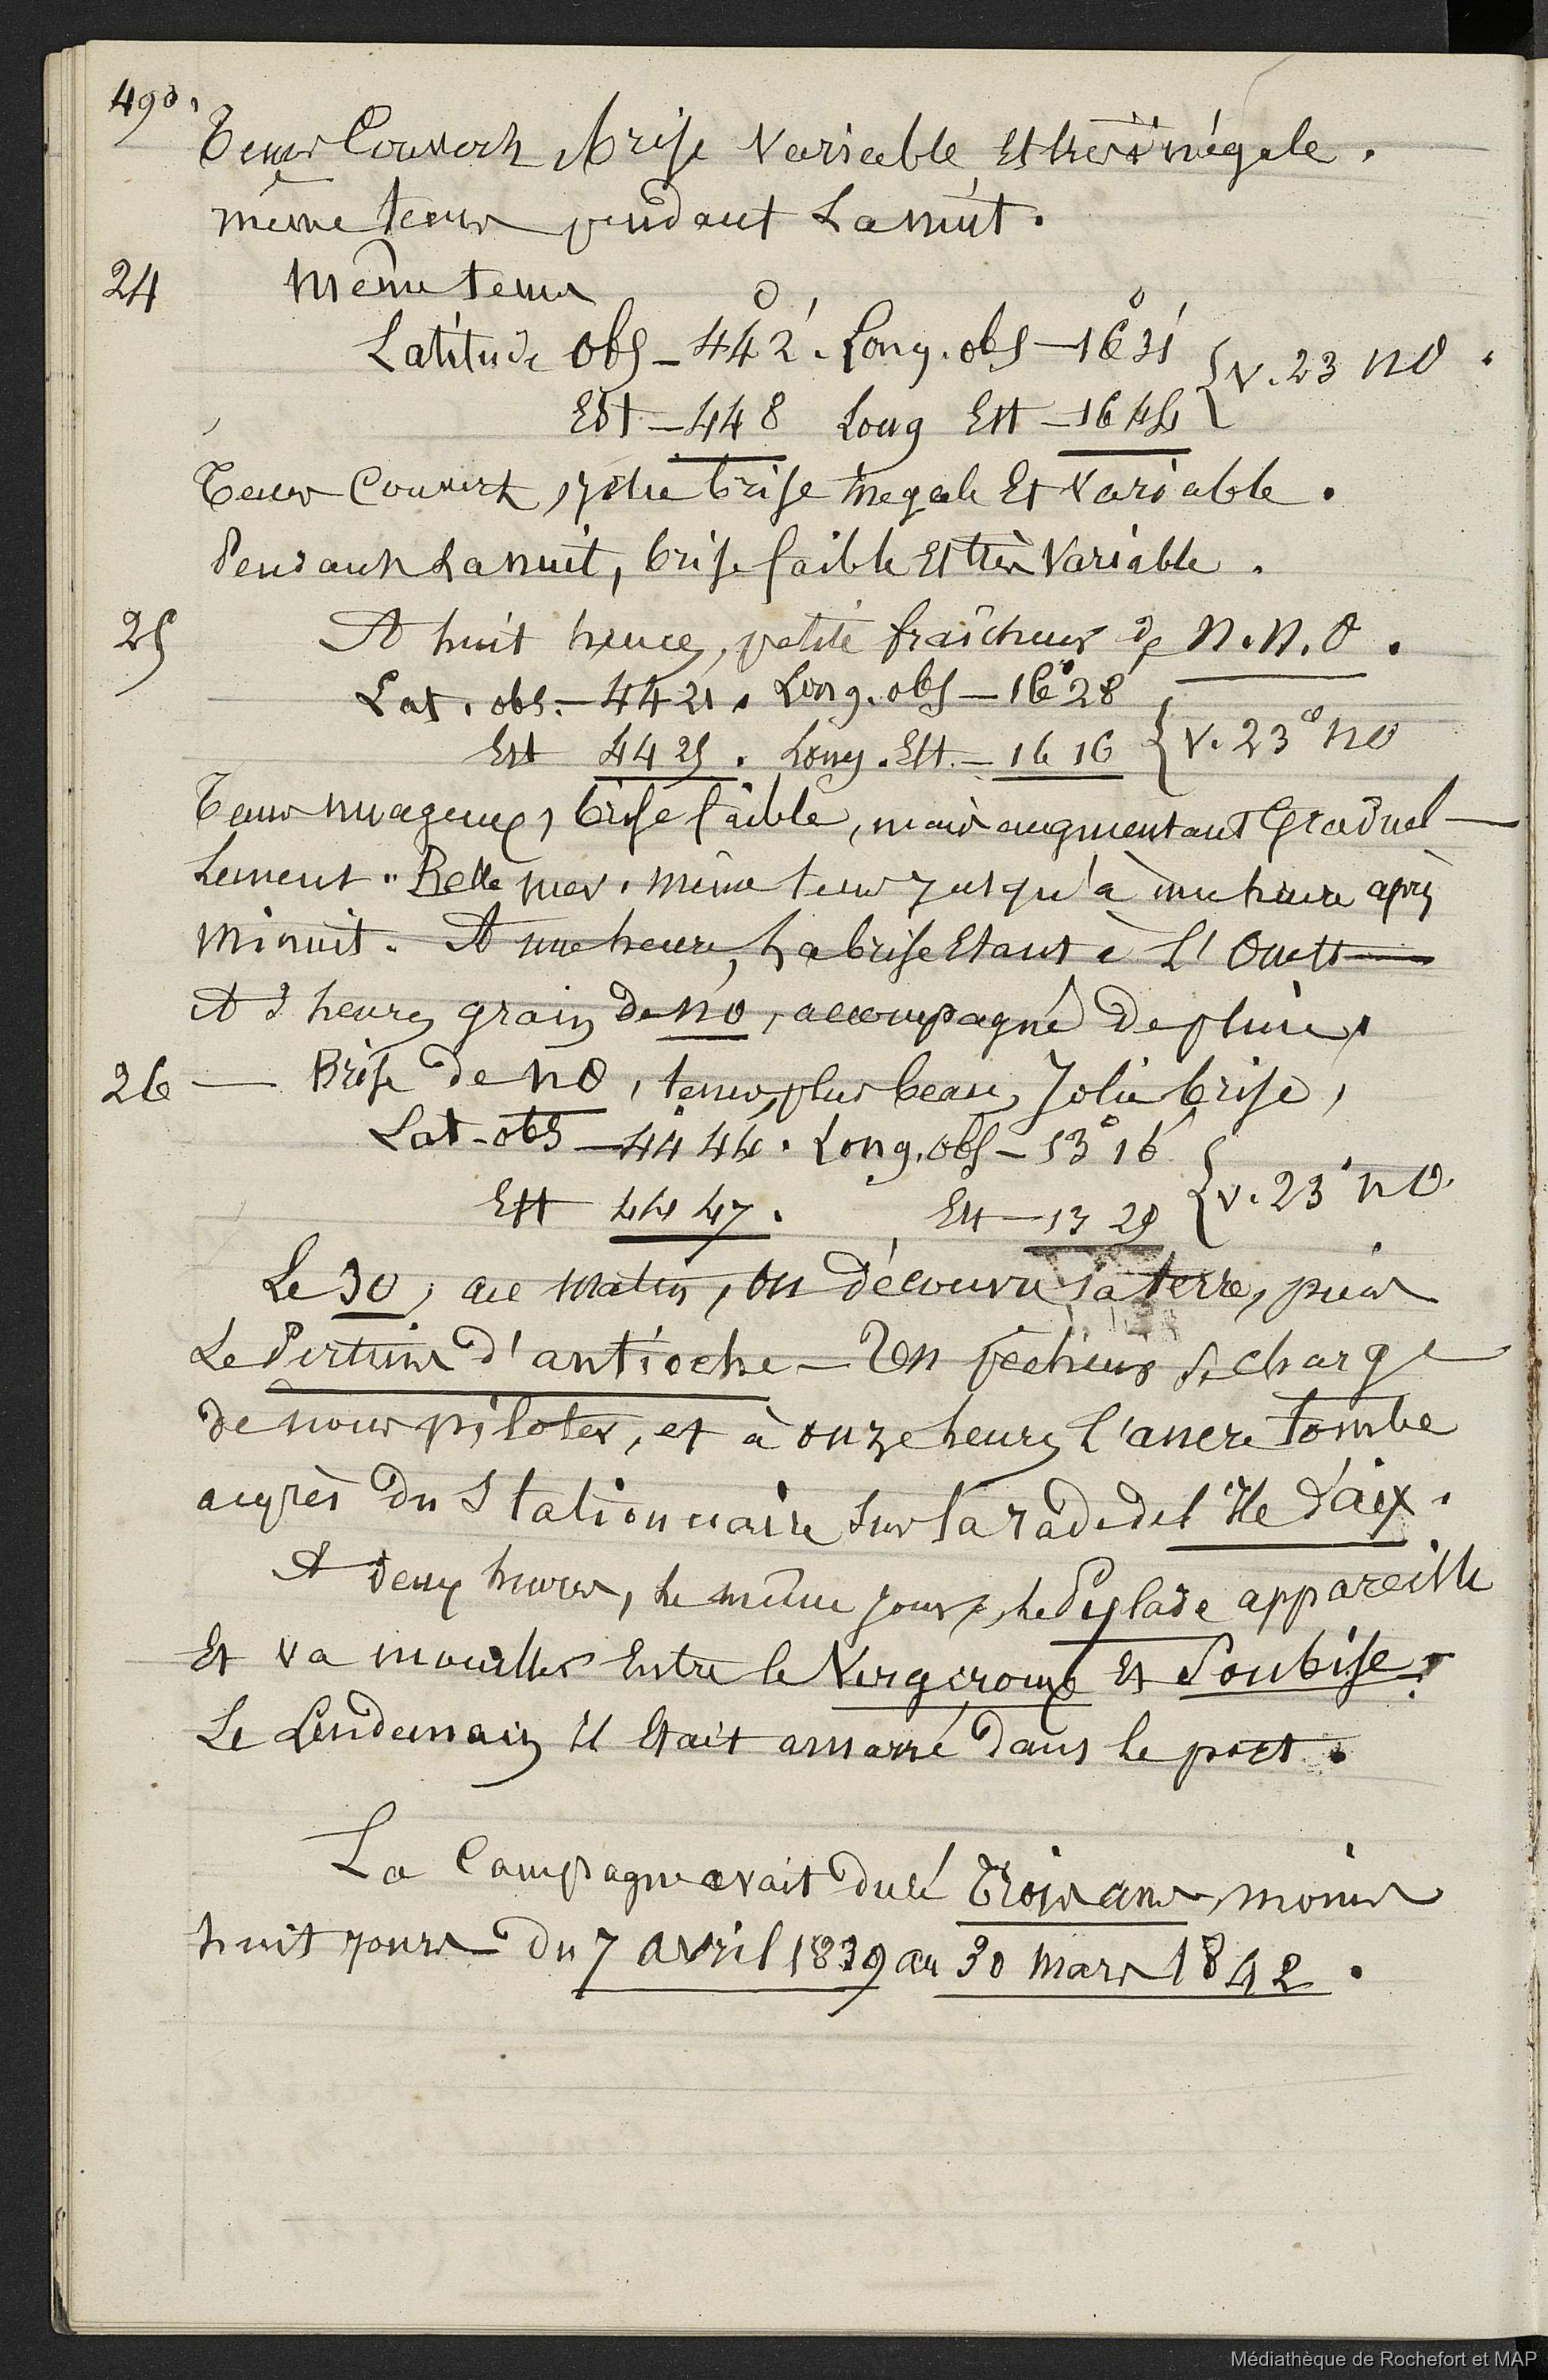 490.
Tems Couvert, brise Variable Et très inégale.
même tems pendant La nuit.
24 même tems
Latitude obs - 44° 2'. Long. obs - 16° 31' { v. 23 NO.
Est - 44 8 Long Est - 16 44
Tems Couvert, jolie brise inegale Et Variable.
Pendant La nuit, brise faible Et très Variable.
25 A huit heures, petite fraîcheur de N.N.O.
Lat. obs. - 44 21. Long. obs - 16° 28' { v. 23° NO
Est 44 25. Long. Est. - 16 16
Tems nuageux, brise faible, mais augmentant Graduel-
lement. Belle mer. même tems jusqu'à une heure après
minuit. A une heure, La brise Etant à L'Ouest
et 3 heures grains de NO, accompagné de pluie.
26 - Brise de NO, tems plus beau, Jolie brise,
Lat - obs - 44° 44. Long. obs - 13° 16' { v. 23° NO.
Est 44 47. Est - 13 29
Le 30, au matin, On découvre la terre, puis
Le Pertuis d'antioche - Un pêcheur se charge
de nous piloter, et à onze heures l'ancre tombe
auprès du Stationnaire sur la rade de l'Ile d'aix.
A deux heures, le même jour, le Pylade appareille
Et va mouiller Entre le Vergeroux Et Soubise.
Le Lendemain il Etait amarré dans le port.
La Campagne avait duré Trois ans, moins
huit jours - Du 7 avril 1839 au 30 mars 1842.
Médiathèque de Rochefort et MAP